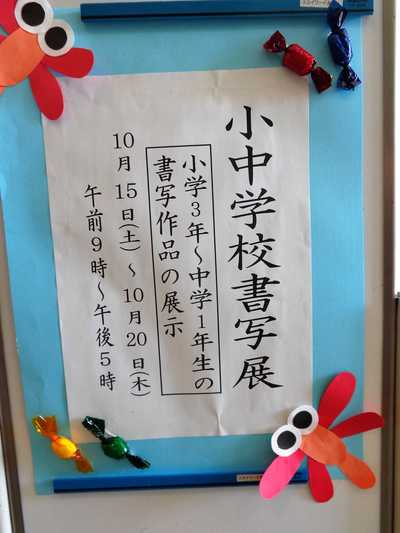 小中学校書写展
小学3年～中学1年生の
書写作品の展示
10月15日(土)～10月20日(木)
午前9時～午後5時